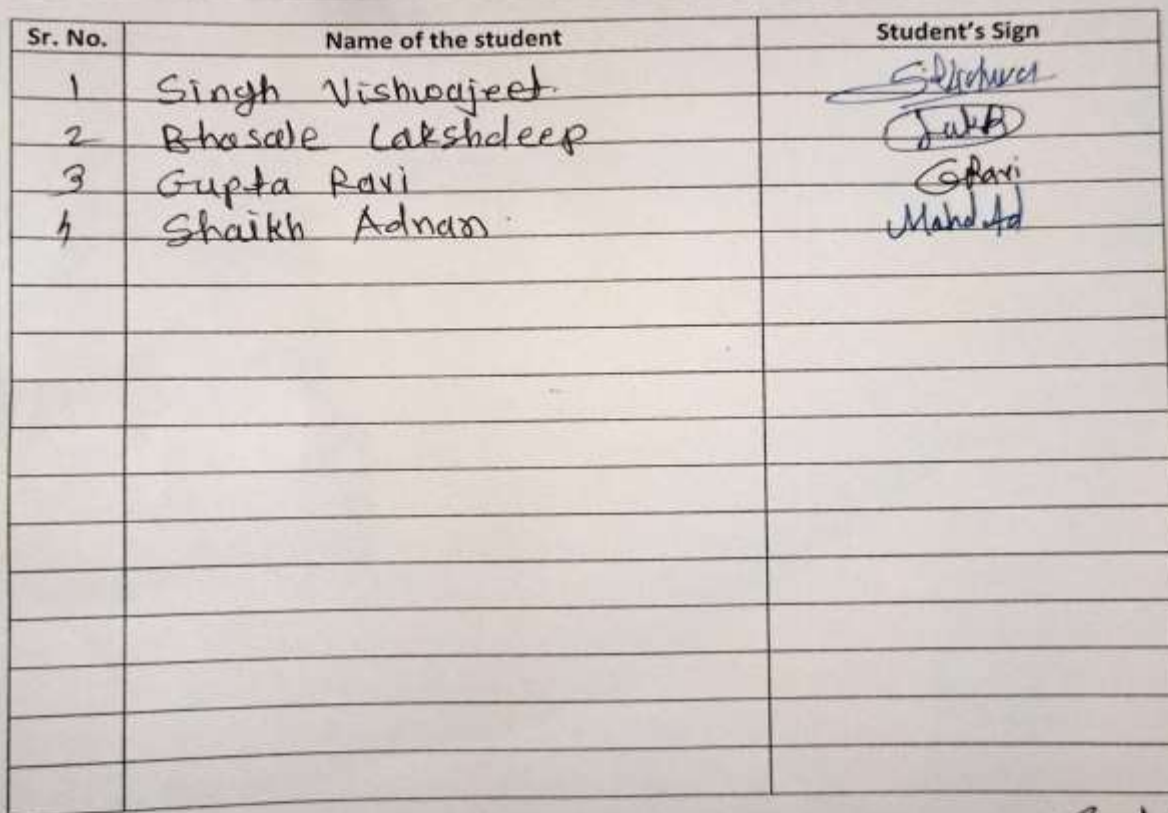 Sr. No. Name of the student Student's Sign
1 Singh Vishwajeet
2 Bhosale Lakshdeep
3 Gupta Ravi GRavi
4 Shaikh Adnan Mohd Ad